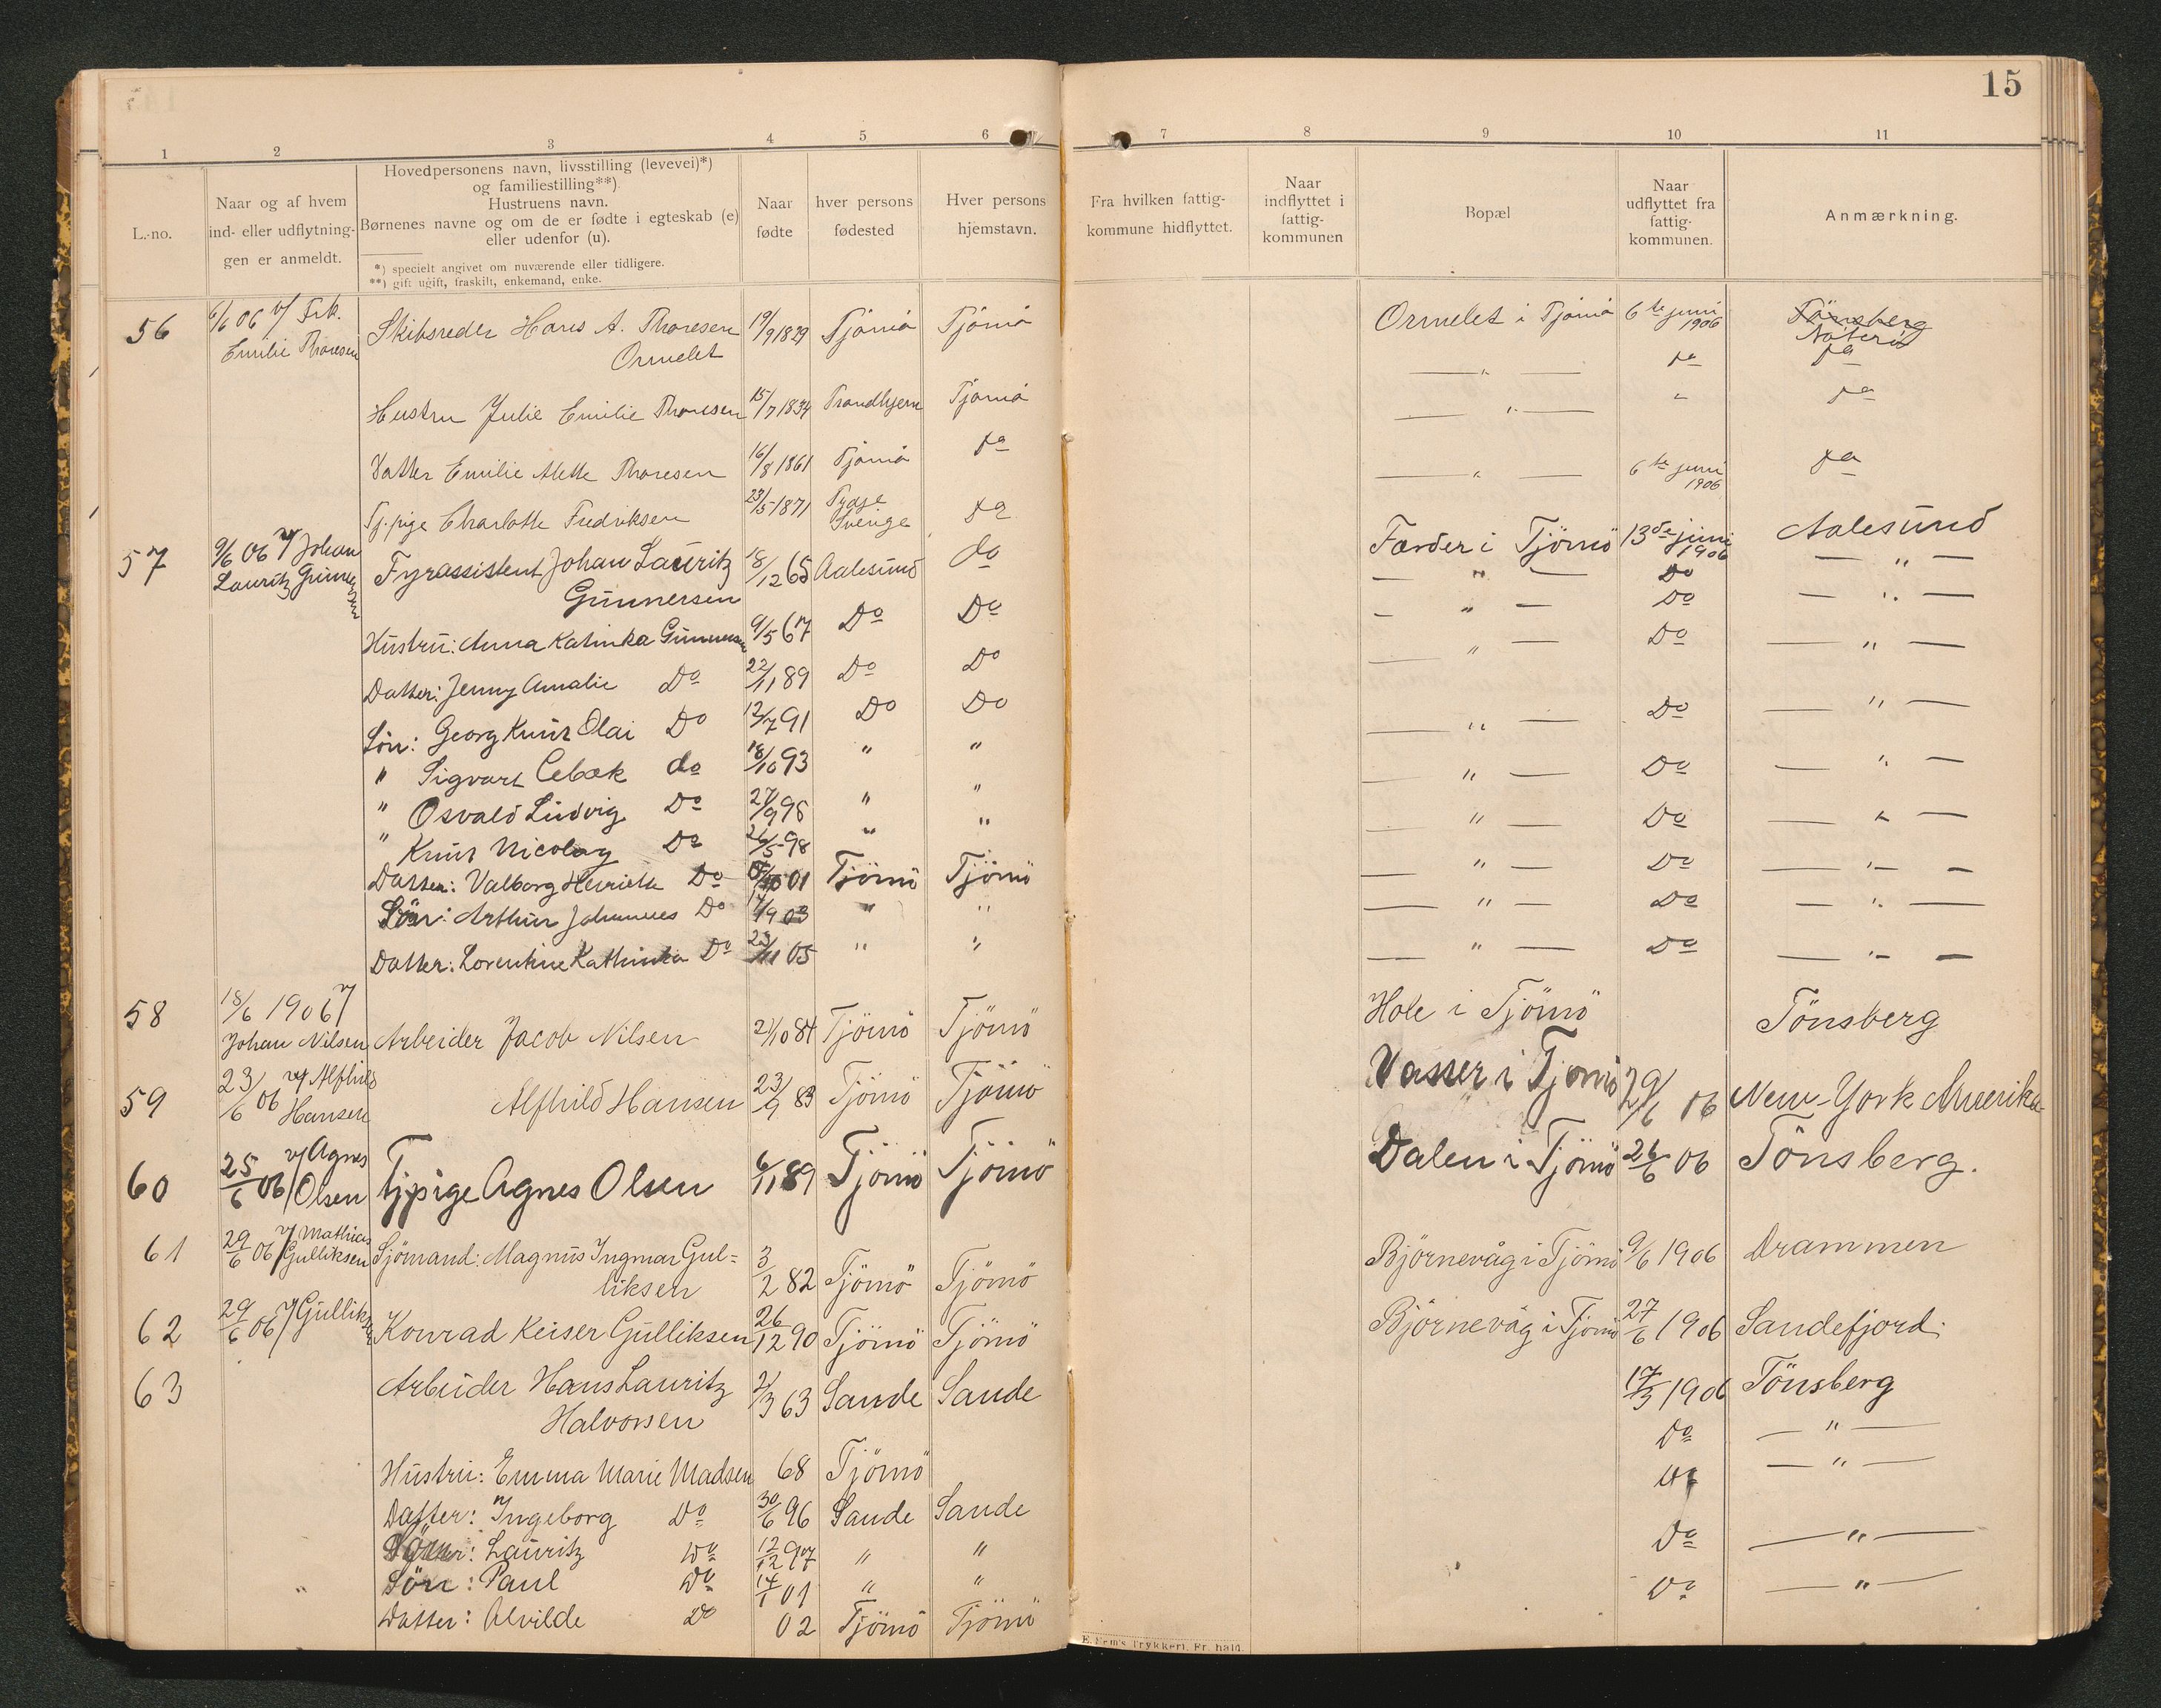 15
1 2 3 4 5 6 7 8 9 10 11
L.-no.
Naar og af hvem
ind- eller udflytnin-
gen er anmeldt.
Hovedpersonens navn, livsstilling (levevei)*)
og familiestilling**)
Hustruens navn.
Børnenes navne og om de er fødte i egteskab (e)
eller udenfor (u).
*) specielt angivet om nuværende eller tidligere.
**) gift ugift, fraskilt, enkemand, enke.
Naar
fødte
hver persons
fødested
Hver persons
hjemstavn.
Fra hvilken fattig-
kommune hidflyttet.
Naar
indflyttet i
fattig-
kommunen
Bopæl
Naar
udflyttet fra
fattig-
kommunen.
Anmærkning.
56 6/6 06 v/ Frk. Skibsreder Hans A. Thoresen 19/9 1829 Tjømø Tjømø Ormelet i Tjømø 6te juni 1906 Tønsberg
Emilie Thoresen Ormelet Nøterø
Hustru Julie Emilie Thoresen 15/7 1834 Trondhjem Tjømø
Datter Emilie Mette Thoresen 16/8 1861 Tjømø da
Tj.pige Charlotte Fredriksen 23/5 1871 Sverige da 6te juni 1906 da
57 9/6 06 v/ Johan Fyrassistent Johan Lauritz 18/12 65 Aalesund do Færder i Tjömö 13de juni 1906 Aalesund
Lauritz Gunnersen Gunnersen — " — Do — " —
Hustru: Anna Katinka Gunnersen 9/5 67 Do Do — " — Do — " —
Datter: Jenny Amalie Do 22/11 89 Do Do — " — Do — " —
Sön: Georg Knut Olai Do 12/7 91 Do Do — " — Do — " —
" Sigvart Do 18/10 93 " " — " — Do — " —
" Osvald Ludvig Do 27/9 96 " " — " — Do — " —
" Knut Nicolay Do 26/5 98 " " — " — Do — " —
Datter: Valborg Henriette Do 01 Tjömö Tjömö — " — Do — " —
Sön: Arthur Johannes Do 17/9 03 " " — " — Do — " —
Datter: Lorentine Kathinka Do 23/11 05 " "
58 18/6 1906 v/ Hole i Tjömö Tönsberg
Johan Nilsen Arbeider Jacob Nilsen 21/10 84 Tjömö Tjömö
59 23/6 06 v/ Alfhild Hansen Alfhild Hansen 23/9 83 Tjömö Tjömö Vasser i Tjömö 29/6 06 New-York Amerika
60 25/6 06 v/ Agnes Olsen Tjpige Agnes Olsen 6/11 89 Tjömö Tjömö Dalen i Tjömö 26/6 06 Tönsberg.
61 29/6 06 v/ Mathias Gulliksen Sjömand: Magnus Ingmar Gul- 3/2 82 Tjömö Tjömö Björnevåg i Tjömö 9/6 1906 Drammen
liksen
62 29/6 06 v/ Gulliksen Konrad Keiser Gulliksen 26/12 90 Tjömö Tjömö Björnevåg i Tjömö 27/6 1906 Sandefjord.
63 Arbeider Hans Lauritz 2/3 63 Sande Sande 17/3 1906 Tönsberg
Halvorsen Do — " —
Hustru: Emma Marie Madsen 68 Tjömö Do — " —
Datter: Ingeborg Do 30/6 96 Sande Sande
Sön: Lauritz Do 12/12 97 " " Do — " —
Sön: Paul Do 14/1 01 " " Do — " —
Datter: Alvilde Do 02 Tjömö Tjömö